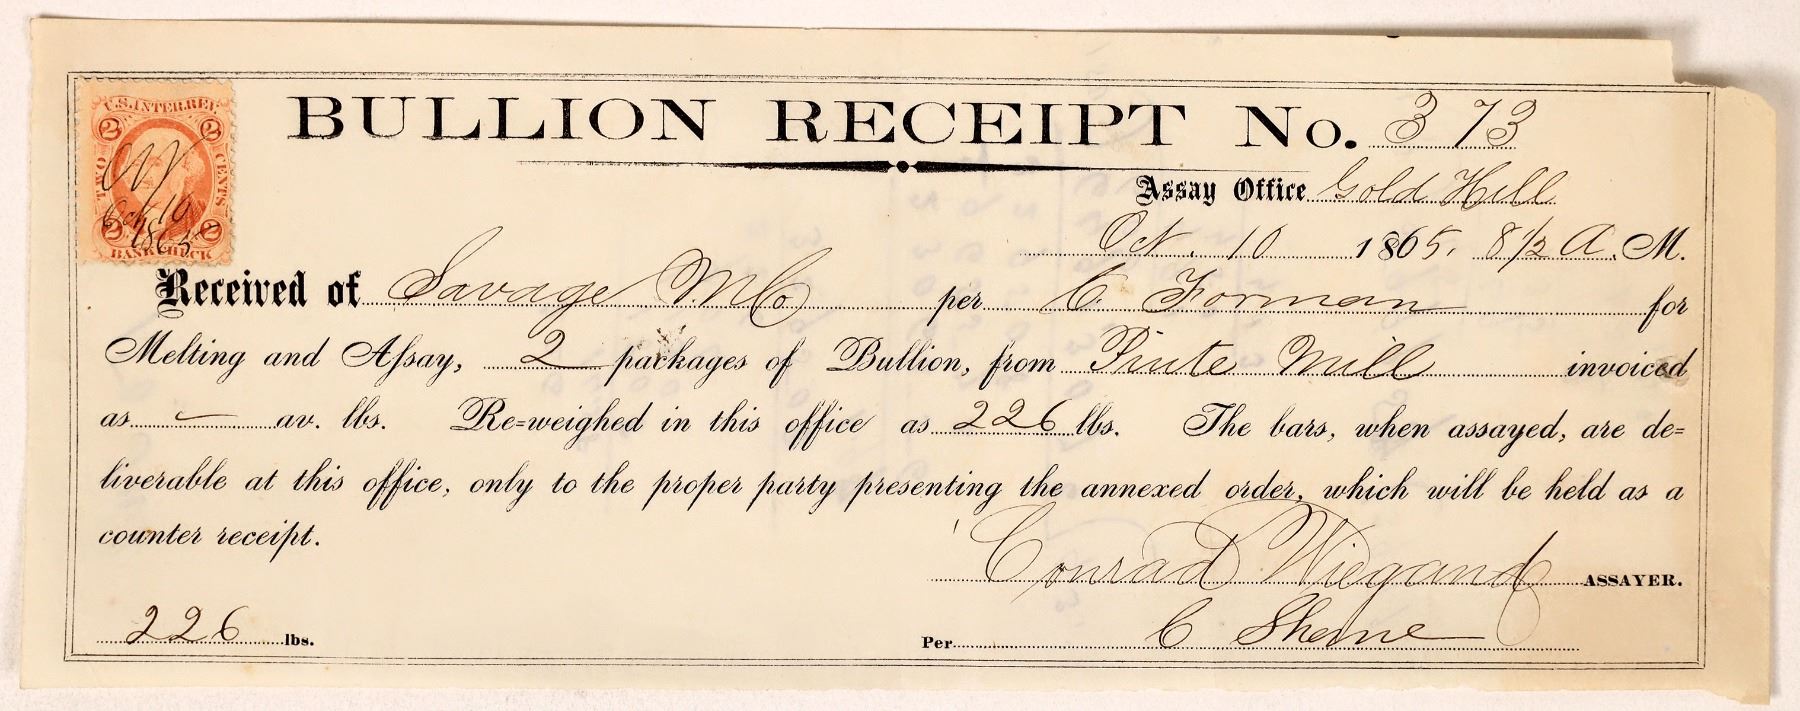 U.S. INTER. REV.
2 2
TWO CENTS
CW
Oct. 10
1865
2 2
BANK CHECK
BULLION RECEIPT No. 373
Assay Office Gold Hill
Oct. 10 1865. 8 1/2 A. M.
Received of Savage M Co per C. Forman for
Melting and Aſsay, 2 packages of Bullion, from Piute Mill invoiced
as — av. lbs. Re=weighed in this office as 226 lbs. The bars, when assayed, are de=
liverable at this office, only to the proper party presenting the annexed order, which will be held as a
counter receipt.
Conrad Wiegand ASSAYER.
226 lbs. Per C